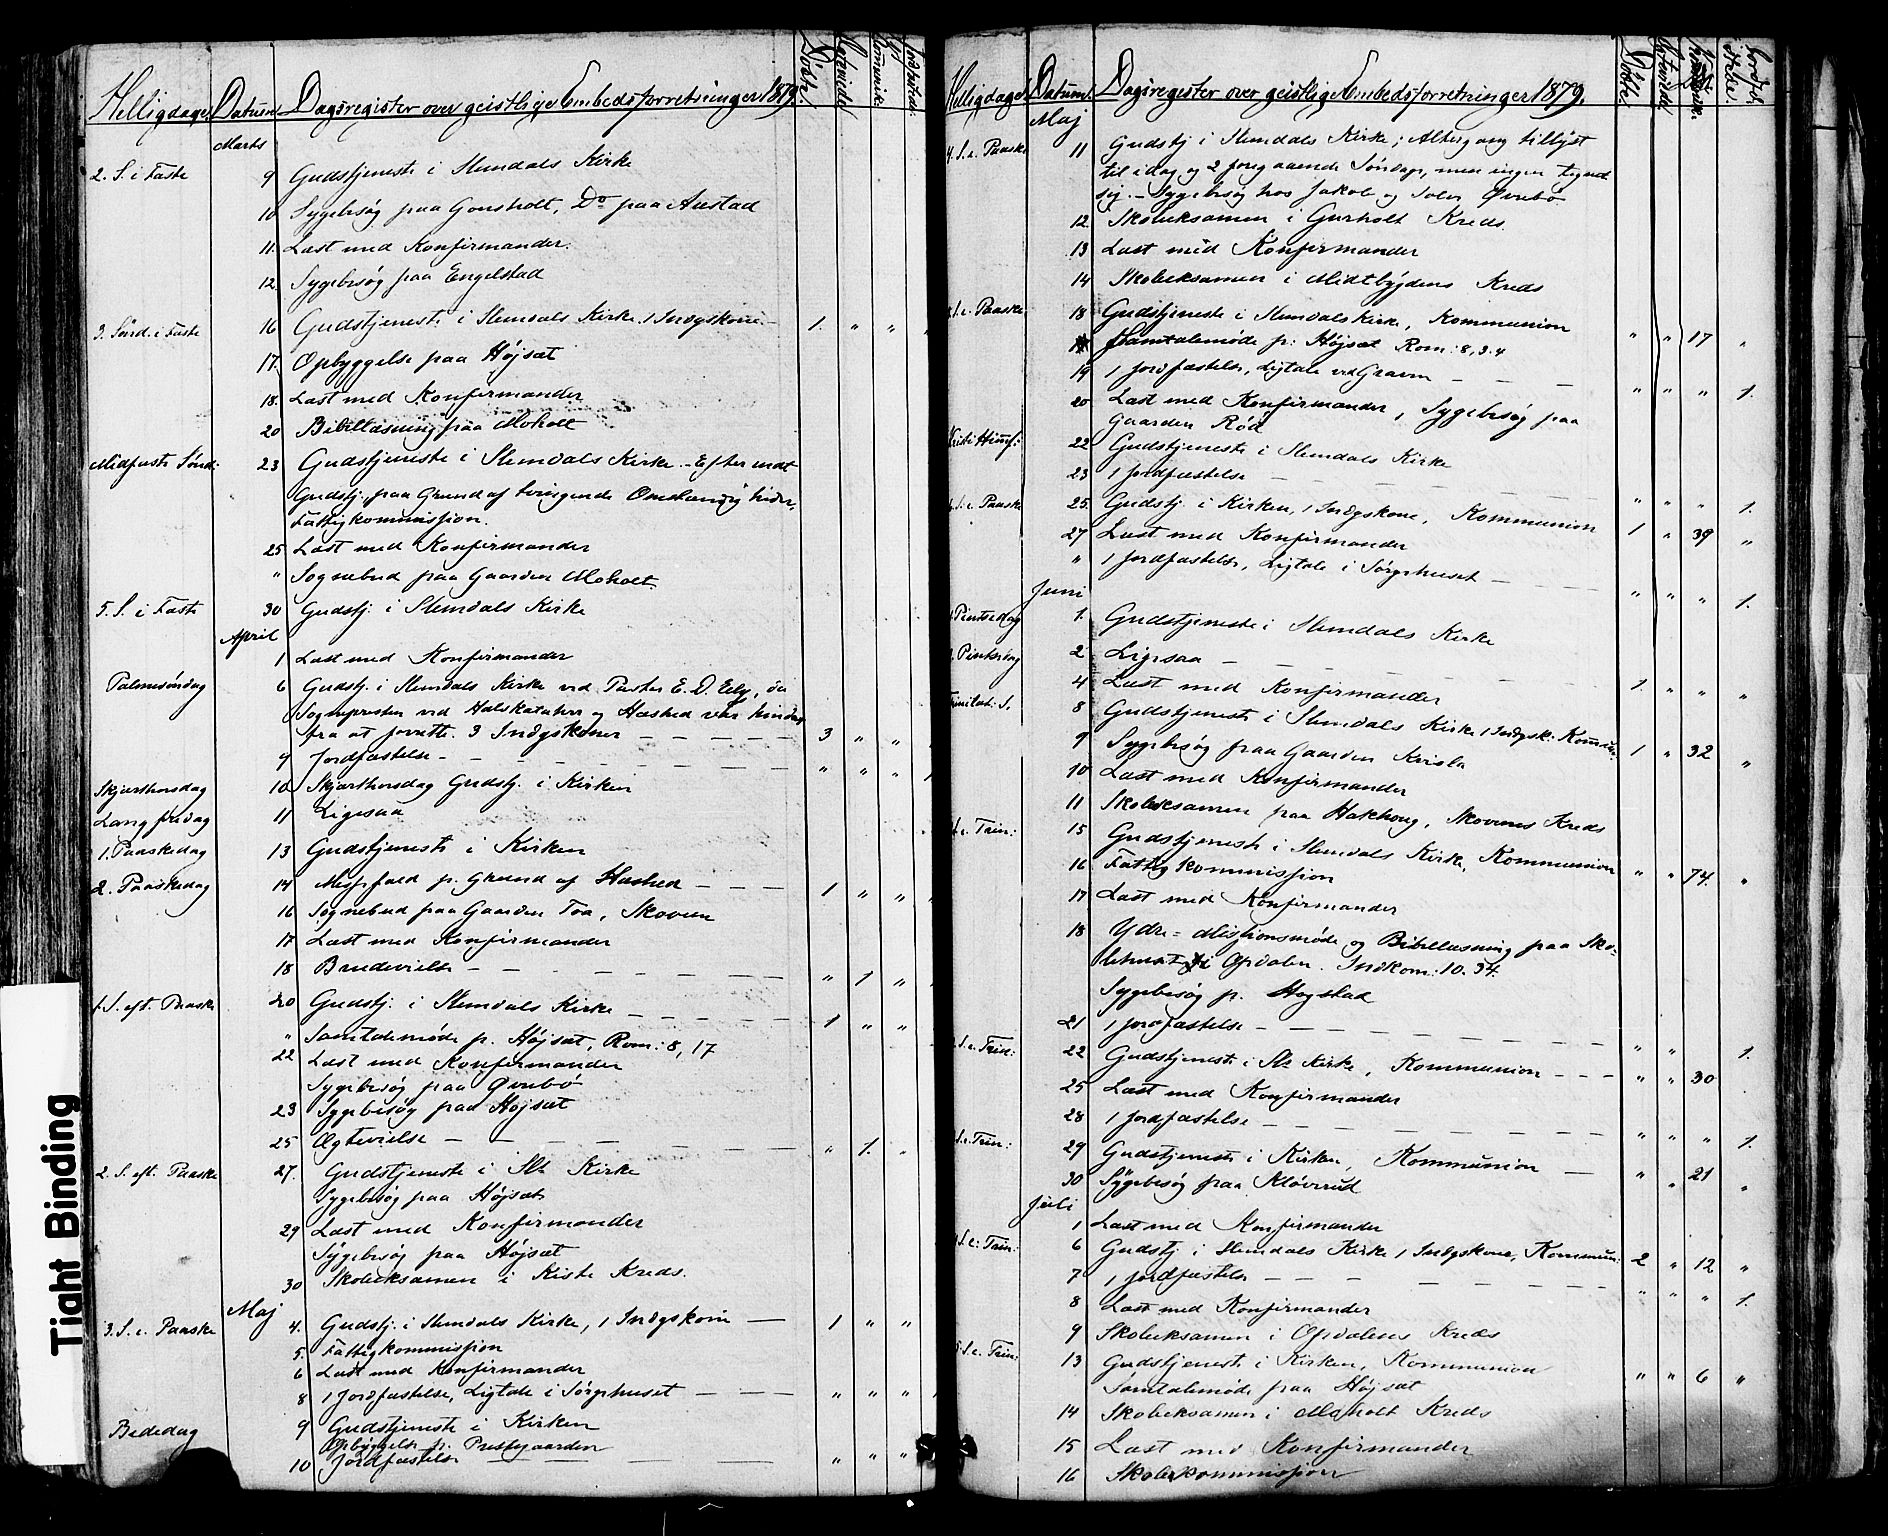 Helligdage. Datum Dagsregister over geistlige Embedsforretninger 1879. Döbte. Copulerede Kommunik. Jordfæstede
Marts
2. S. i Faste 9 Gudstjeneste i Slemdals Kirke
10 Sygebesøg paa Gonsholt, Do paa Austad
11. Læst med Konfirmander.
12. Sygebesøg paa Engelstad
3. Sönd. i Faste 16 Gudstjeneste i Slemdals Kirke. 1 Indgskone. - 1. " "
17. Opbyggelse paa Højsæt
18. Læst med Konfirmander
20 Bibellæsning paa Moholt
Midfaste Sönd: 23 Gudstjeneste i Slemdals Kirke. - Efter endt
Gudstj. paa Grund af tvingende Omstændighder,
Fattigkommission.
25 Læst med Konfirmander
" Sognebud paa Gaarden Moholt.
5. S. i Faste 30 Gudstj: i Slemdals Kirke
April
1 Læst med Konfirmander
Palmesöndag 6 Gudstj. i Slemdals Kirke ved Pastor E. D. , da
Sognepresten ved Halskatahrr og Hæshed var hindret
fra at forrette. 3 Indgskoner - - - - - 3 " "
9 Jordfæstelse - - - - - - - - " " "
Skjærthorsdag 10 Skjærthorsdag Gudstj. i Kirken
Langfredag 11 Ligesaa
1. Paaskedag 13 Gudstjeneste i Kirken
2. Paaskedag 14 Messefald p. Grund af Hæshed - - - 1 " "
16 Sognebud paa Gaarden Toa, Skoven
17 Læst med Konfirmander
18 Brudevielse - - - - - - - " 1 "
1 S. eft. Paaske 20 Gudstj: i Slemdals Kirke - - - - - 1 " "
" Samtalemøde p. Højsæt, Rom: 8, 17
22 Læst med Konfirmander
Sygebesøg paa Øvrebö
23 Sygebesøg paa Højsæt
25 Ægtevielse - - - - - - - " 1. "
2 S. eft. Paaske 27. Gudstjeneste i Sls Kirke
Sygebesøg paa Højsæt
29 Læst med Konfirmander
Sygebesøg paa Højsæt
30 Skoleeksamen i Kiste Kreds.
Maj
3. S. e. Paaske 4. Gudstj. i Slemdals Kirke, 1 Indgskone - 1 " "
5. Fattigkommission
6 Læst med Konfirmander
8 1 Jordfæstelse, Ligtale i Sörgehuset - - - " " "
Bededag 9 Gudstjeneste i Kirken
Opbyggelse p. Prestegaarden
10 Jordfæstelse - - - - - " " "
Helligdage. Datum. Dagsregister over geistlige Embedsforretninger 1879. Döbte. Copulerede
Maj
4. S. e. Paaske 11 Gudstj i Slemdals Kirke; Altergang tillyst
til idag og 2 foregaaende Söndage, men ingen tegned
sig. - Sygebesøg hos Jakob og Øvrebö
12 Skoleeksamen i Gurholt Kreds.
13 Læst med Konfirmander
14 Skoleeksamen i Midtbygdens Kreds
S. e. Paaske 18 Gudstjeneste i Slemdals Kirke, Kommunion " " 17 "
Samtalemøde p: Højsæt Rom: 8, 3.4
19 1 Jordfæstelse, Ligtale ved Graven - - - " " " 1.
20 Læst med Konfirmander, Sygebesøg paa
Gaarden Röd
Kristi Himf: 22 Gudstjeneste i Slemdals Kirke
23 1 Jordfæstelse - - - - - - " " " 1.
S. e. Paaske 25. Gudstj. i Kirken, 1 Indgskone, Kommunion 1 " 39 "
27 Læst med Konfirmander
" 1 Jordfæstelse, Ligtale i Sörgehuset - - - " " " 1.
Juni
Pintsedag 1. Gudstjeneste i Slemdals Kirke
Pintsedag 2 Ligesaa - - - - - - - 1. " " "
4 Læst med Konfirmander
Trinitat: S. 8 Gudstjeneste i Slemdals Kirke 1 Indgsk: Kommun: 1 " 32 "
9 Sygebesøg paa Gaarden Kvisla
10 Læst med Konfirmander
11 Skoleeksamen paa Hakhoug, Skovens Kreds
S. e. Trin: 15 Gudstjeneste i Slemdals Kirke, Kommunion " " 74. "
16 Fattigkommission
17 Læst med Konfirmander
18 Ydre-Missionsmøde og Bibellæsning paa Sko-
lehuset i Opdalen. Indkom: 10. 34.
Sygebesøg p. Hogstad
21 1 Jordfæstelse - - - - - - " " 1.
S. e. Trin: 22 Gudstjeneste i Sls Kirke, Kommunion - - - " " 30
25 Læst med Konfirmander
28 1 Jordfæstelse - - - - - - " " " 1.
S. e. Trin: 29 Gudstjeneste i Kirken, Kommunion - " " 21 "
30 Sygebesøg paa Klöverud
Juli
1 Læst med Konfirmander
S. e. Trin: 6 Gudstj i Slemdals Kirke 1 Indgskone, Kommun: 2 " 12 "
7 1 Jordfæstelse - - - - - - " " " 1.
8 Læst med Konfirmander
9 Skoleeksamen i Opdalens Kreds
S. e. Trin: 13 Gudstjeneste i Kirken, Kommunion " " 6 "
Samtalemøde paa Højsæt
14 Skoleeksamen i Moholt Kreds
15 Læst med Konfirmander
16 Skolekommission
Tight Binding